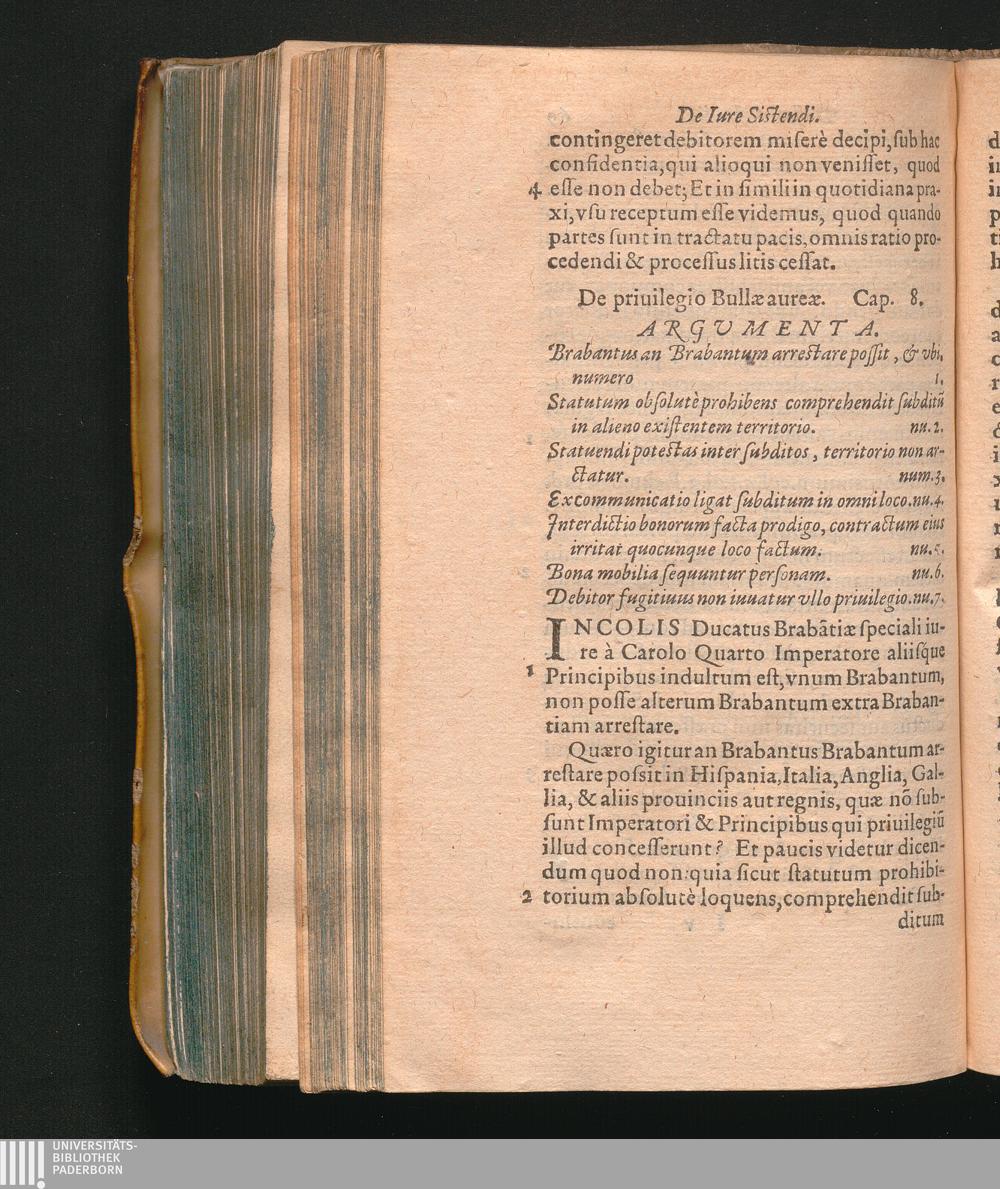 De Iure Sistendi.
contingeret debitorem miserè decipi, sub hac
confidentia, qui alioqui non venisset, quod
4 esse non debet; Et in simili in quotidiana pra-
xi, vsu receptum esse videmus, quod quando
partes sunt in tractatu pacis, omnis ratio pro-
cedendi & processus litis cessat.
De priuilegio Bullæ aureæ. Cap. 8.
ARGVMENTA.
Brabantus an Brabantum arrestare possit, & vbi,
numero 1.
Statutum obsolutè prohibens comprehendit subditū
in alieno existentem territorio. nu. 2.
Statuendi potestas inter subditos, territorio non ar-
ctatur. num. 3.
Excommunicatio ligat subditum in omni loco. nu. 4.
Interdictio bonorum facta prodigo, contractum eius
irritat quocunque loco factum. nu. 5.
Bona mobilia sequuntur personam. nu. 6.
Debitor fugitiuus non iuuatur vllo priuilegio. nu. 7.
INCOLIS Ducatus Brabātiæ speciali iu-
re à Carolo Quarto Imperatore aliisq́ue
1 Principibus indultum est, vnum Brabantum,
non posse alterum Brabantum extra Braban-
tiam arrestare.
Quæro igitur an Brabantus Brabantum ar-
restare possit in Hispania, Italia, Anglia, Gal-
lia, & aliis prouinciis aut regnis, quæ nō sub-
sunt Imperatori & Principibus qui priuilegiū
illud concesserunt? Et paucis videtur dicen-
dum quod non: quia sicut statutum prohibi-
2 torium absolutè loquens, comprehendit sub-
ditum
UNIVERSITÄTS-
BIBLIOTHEK
PADERBORN